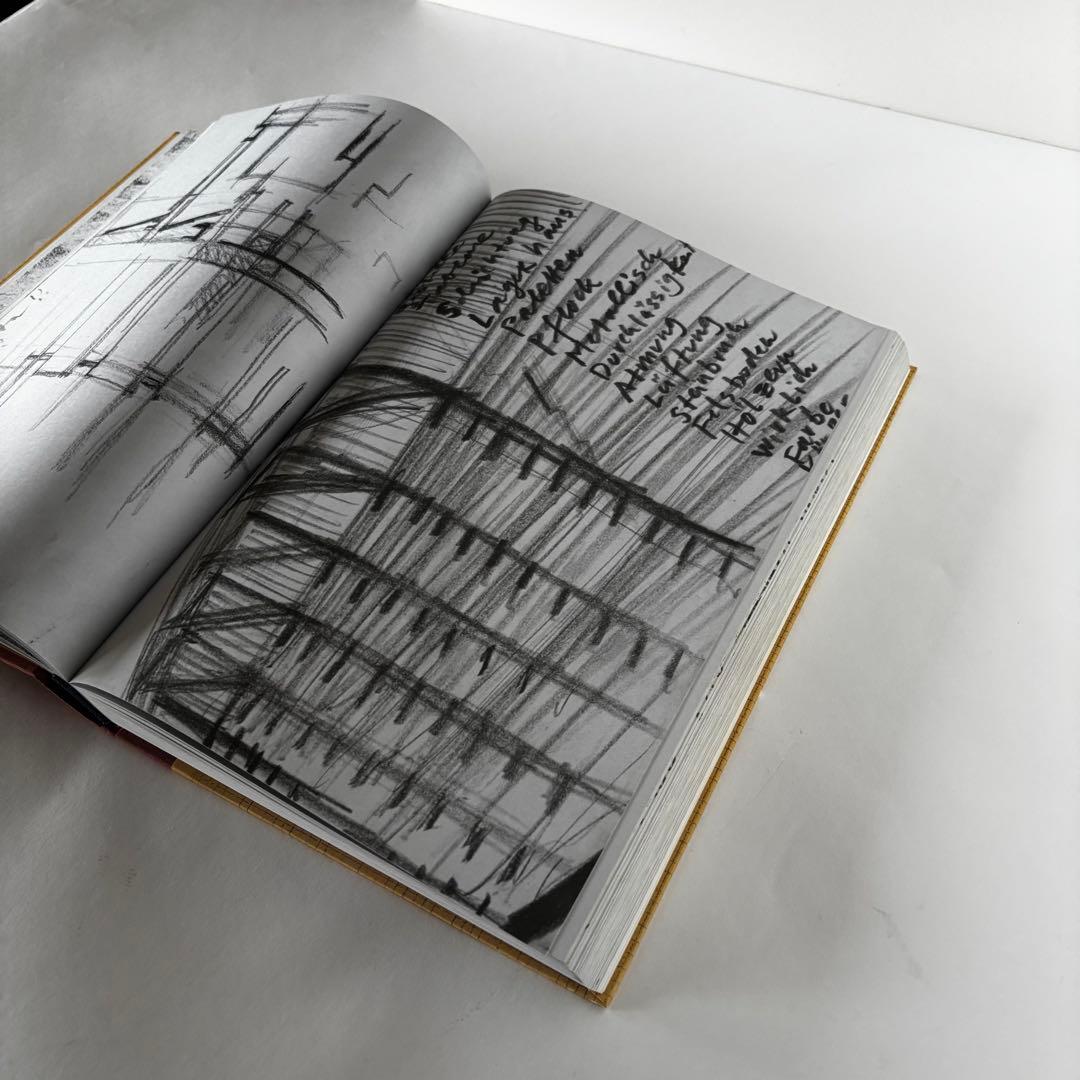 Schichtung
Lagerhaus
Paletten
Pflock
Metallisch
Durchlässigkeit
Atmung
Lüftung
Steinbruch
Felsboden
Holzern
wirklich
Farbe-